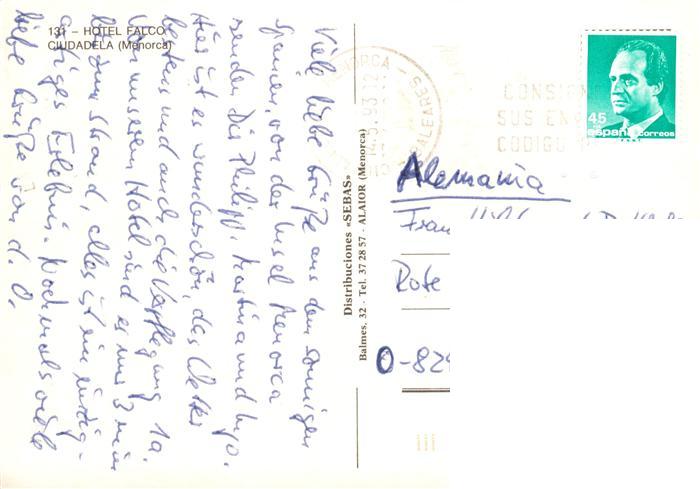 131 – HOTEL FALCO
CIUDADELA (Menorca)
Viele liebe Grüße aus dem sonnigen
Spanien, von der Insel Menorca
senden Dir Philipp, Martina und Ingo.
Hier ist es wunderschön, das Wetter
bestens und auch die Verpflegung 1a.
Von unserem Hotel sind es nur 3 min
bis zum Strand, alles ist ein einzig-
artiges Erlebnis. Nochmals viele
liebe Grüße von d. O.
Distribuciones «SEBAS»
Balmes, 32 - Tel. 37 28 57 - ALAIOR (Menorca)
MENORCA - BALEARES
93 12
CONSIGN
SUS EN
CODIGO
45
españa correos
Alemania
Frau
Rote
O-829